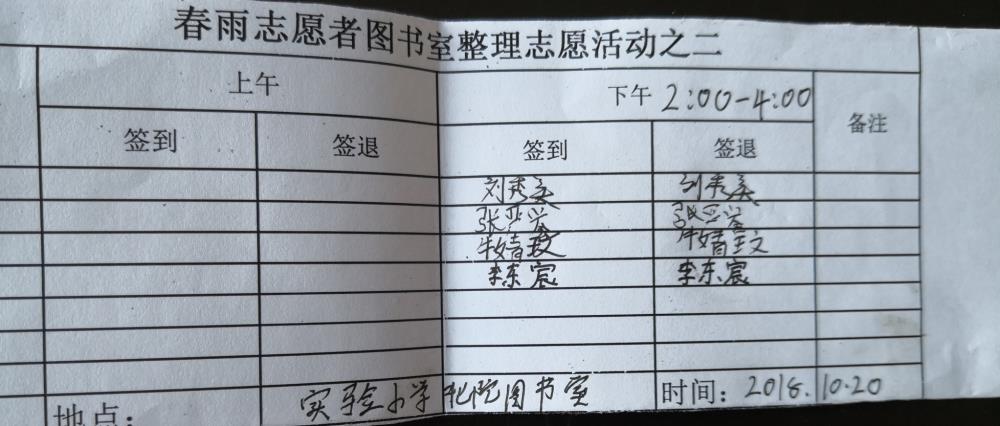 春雨志愿者图书室整理志愿活动之二
上午 下午 2:00-4:00 备注
签到 签退 签到 签退
刘秀美 刘秀美
张 张
牛婧玟 牛婧玟
李东宸 李东宸
地点: 实验小学 院图书室 时间: 2018.10.20